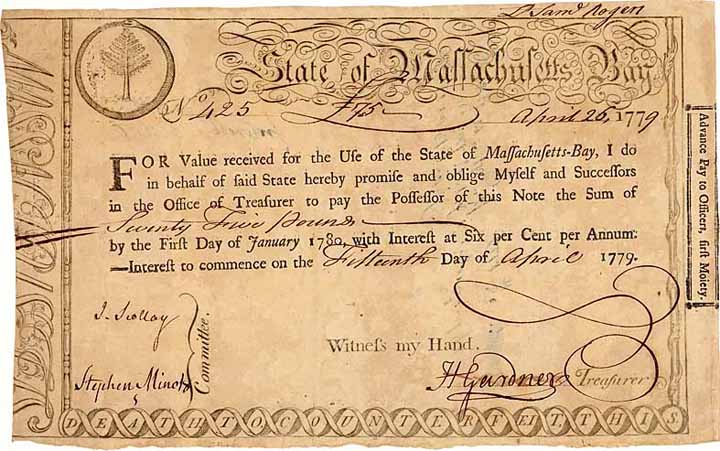 D Samˡ Rogers
State of Maſſachuſetts Bay
No 425 £75 April 26, 1779
FOR Value received for the Uſe of the State of Maſſachuſetts-Bay, I do
in behalf of ſaid State hereby promiſe and oblige Myſelf and Succeſſors
in the Office of Treaſurer to pay the Poſſeſſor of this Note the Sum of
Seventy Five Pounds
by the Firſt Day of January 1780, with Intereſt at Six per Cent per Annum:
—Intereſt to commence on the Fifteenth Day of April 1779.
Advance Pay to Officers, firſt Moiety.
J. Scollay
Stephen Minot
Committee.
Witneſs my Hand.
H Gardner Treaſurer
DEATH TO COUNTERFEIT THIS